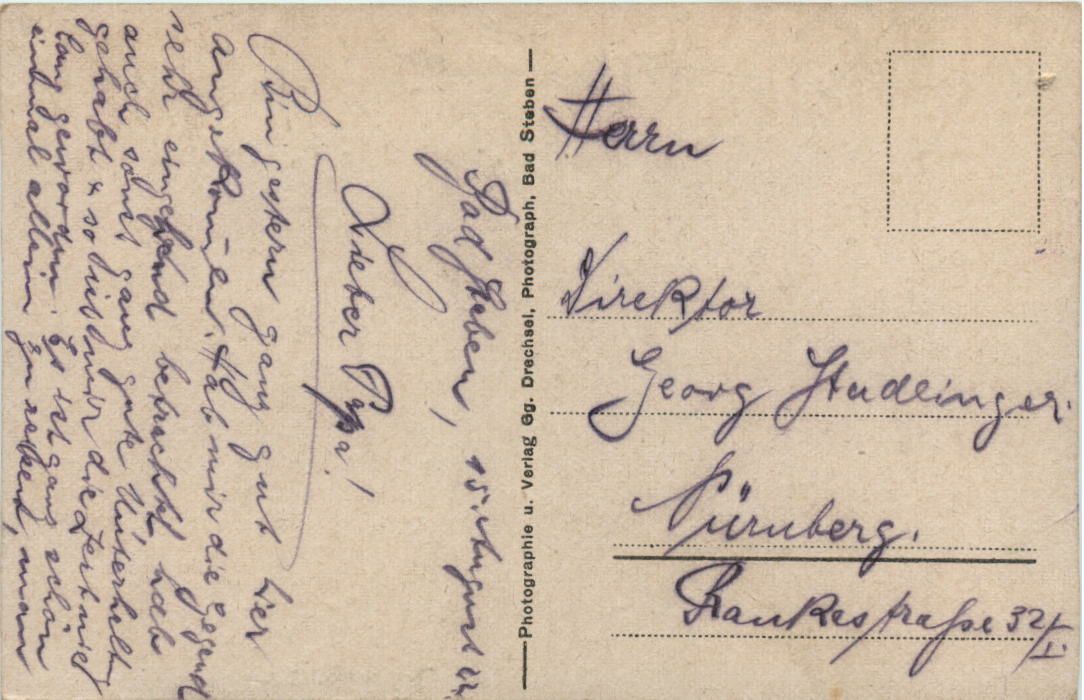 Bad Steben, 15. August 22.
Lieber Papa!
Bin gestern ganz gut hier
angekommen. Hab mir die Gegend
sehr eingehend betrachtet, habe
auch sonst ganz gute Unterhaltg
gehabt & so ist mir die Zeit nie
lang geworden. Es ist ganz schön
einmal allein zu reisen, man
Photographie u. Verlag Gg. Drechsel, Photograph, Bad Steben
Herrn
Direktor
Georg Stadlinger.
Nürnberg.
Rankestraße 32/I.